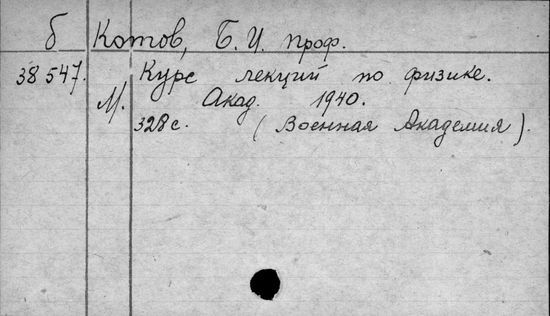 б Котов, Б. И. проф.
38547. Курс лекций по физике.
М. Акад. 1940.
328 с. (Военная Академия).